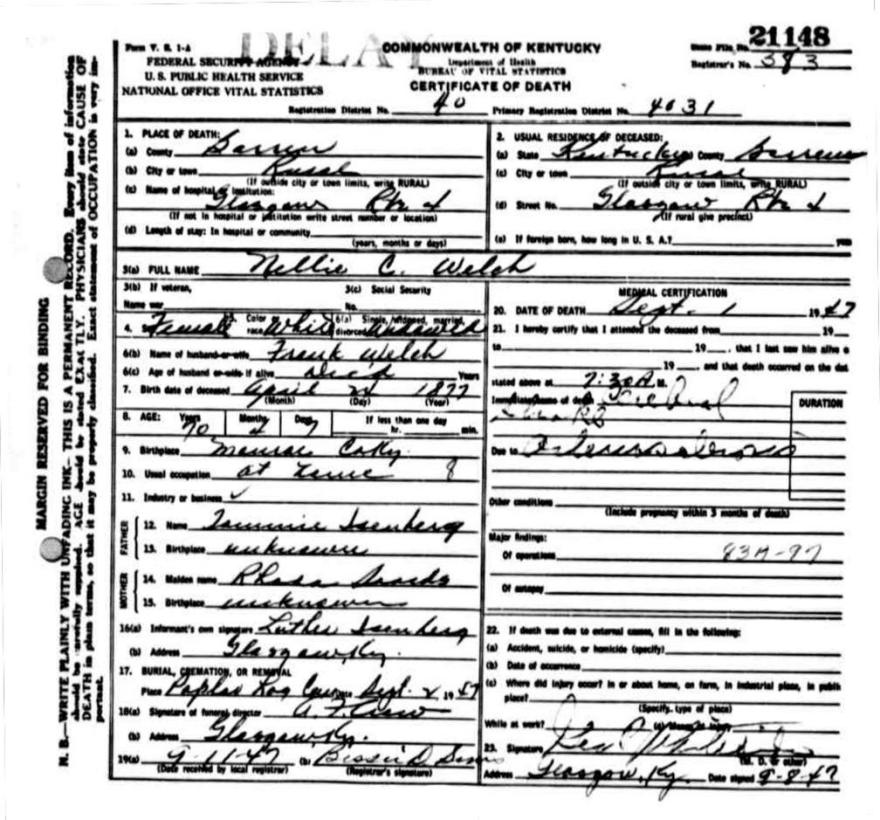 DELAY
Form V. S. 1-A
FEDERAL SECURITY AGENCY
U. S. PUBLIC HEALTH SERVICE
NATIONAL OFFICE VITAL STATISTICS
COMMONWEALTH OF KENTUCKY
Department of Health
BUREAU OF VITAL STATISTICS
CERTIFICATE OF DEATH
State File No. 21148
Registrar's No. 383
Registration District No. 40 Primary Registration District No. 4031
MARGIN RESERVED FOR BINDING
N. B.—WRITE PLAINLY WITH UNFADING INK—THIS IS A PERMANENT RECORD. Every item of information
should be carefully supplied. AGE should be stated EXACTLY. PHYSICIANS should state CAUSE OF
DEATH in plain terms, so that it may be properly classified. Exact statement of OCCUPATION is very im-
portant.
1. PLACE OF DEATH:
(a) County Barren
(b) City or town Rural
(If outside city or town limits, write RURAL)
(c) Name of hospital or institution:
Glasgow Rte 4
(If not in hospital or institution write street number or location)
(d) Length of stay: In hospital or community
(years, months or days)
2. USUAL RESIDENCE OF DECEASED:
(a) State Kentucky (b) County Barren
(c) City or town Rural
(If outside city or town limits, write RURAL)
(d) Street No. Glasgow Rte 4
(If rural give precinct)
(e) If foreign born, how long in U. S. A.? years
3(a) FULL NAME Nellie C. Welch
3(b) If veteran, 3(c) Social Security
Name war No.
4. Female 5. Color or race White 6(a) Single, widowed, married, divorced Widowed
6(b) Name of husband or wife Frank Welch
6(c) Age of husband or wife if alive Dec'd Years
7. Birth date of deceased April 24 1877
(Month) (Day) (Year)
8. AGE: Years Months Days If less than one day
70 4 7 hr. min.
9. Birthplace Monroe Co Ky.
10. Usual occupation at home 8
11. Industry or business ✓
FATHER
12. Name Tommie Isenberg
13. Birthplace unknown
MOTHER
14. Maiden name Rhoda
15. Birthplace unknown
16(a) Informant's own signature Luther Isenberg
(b) Address Glasgow, Ky.
17. BURIAL, CREMATION, OR REMOVAL
Place Poplar Log Date Sept. 2, 1947
18(a) Signature of funeral director A. F. Crow
(b) Address Glasgow, Ky.
19(a) 9-11-47 (b) Bessie D.
(Date received by local registrar) (Registrar's signature)
MEDICAL CERTIFICATION
20. DATE OF DEATH Sept. 1 1947
21. I hereby certify that I attended the deceased from 19
to 19, that I last saw him alive o
19, and that death occurred on the dat
stated above at 7:30 A. M.
Immediate cause of death Cerebral
DURATION
Due to
Other conditions
(Include pregnancy within 3 months of death)
Major findings:
Of operations 83A-97
Of autopsy
22. If death was due to external causes, fill in the following:
(a) Accident, suicide, or homicide (specify)
(b) Date of occurrence
(c) Where did injury occur? In or about home, on farm, in industrial place, in public
place?
(Specify type of place)
While at work? (e) Means of injury
23. Signature
(M. D. or other)
Address Glasgow, Ky. Date signed 9-8-47